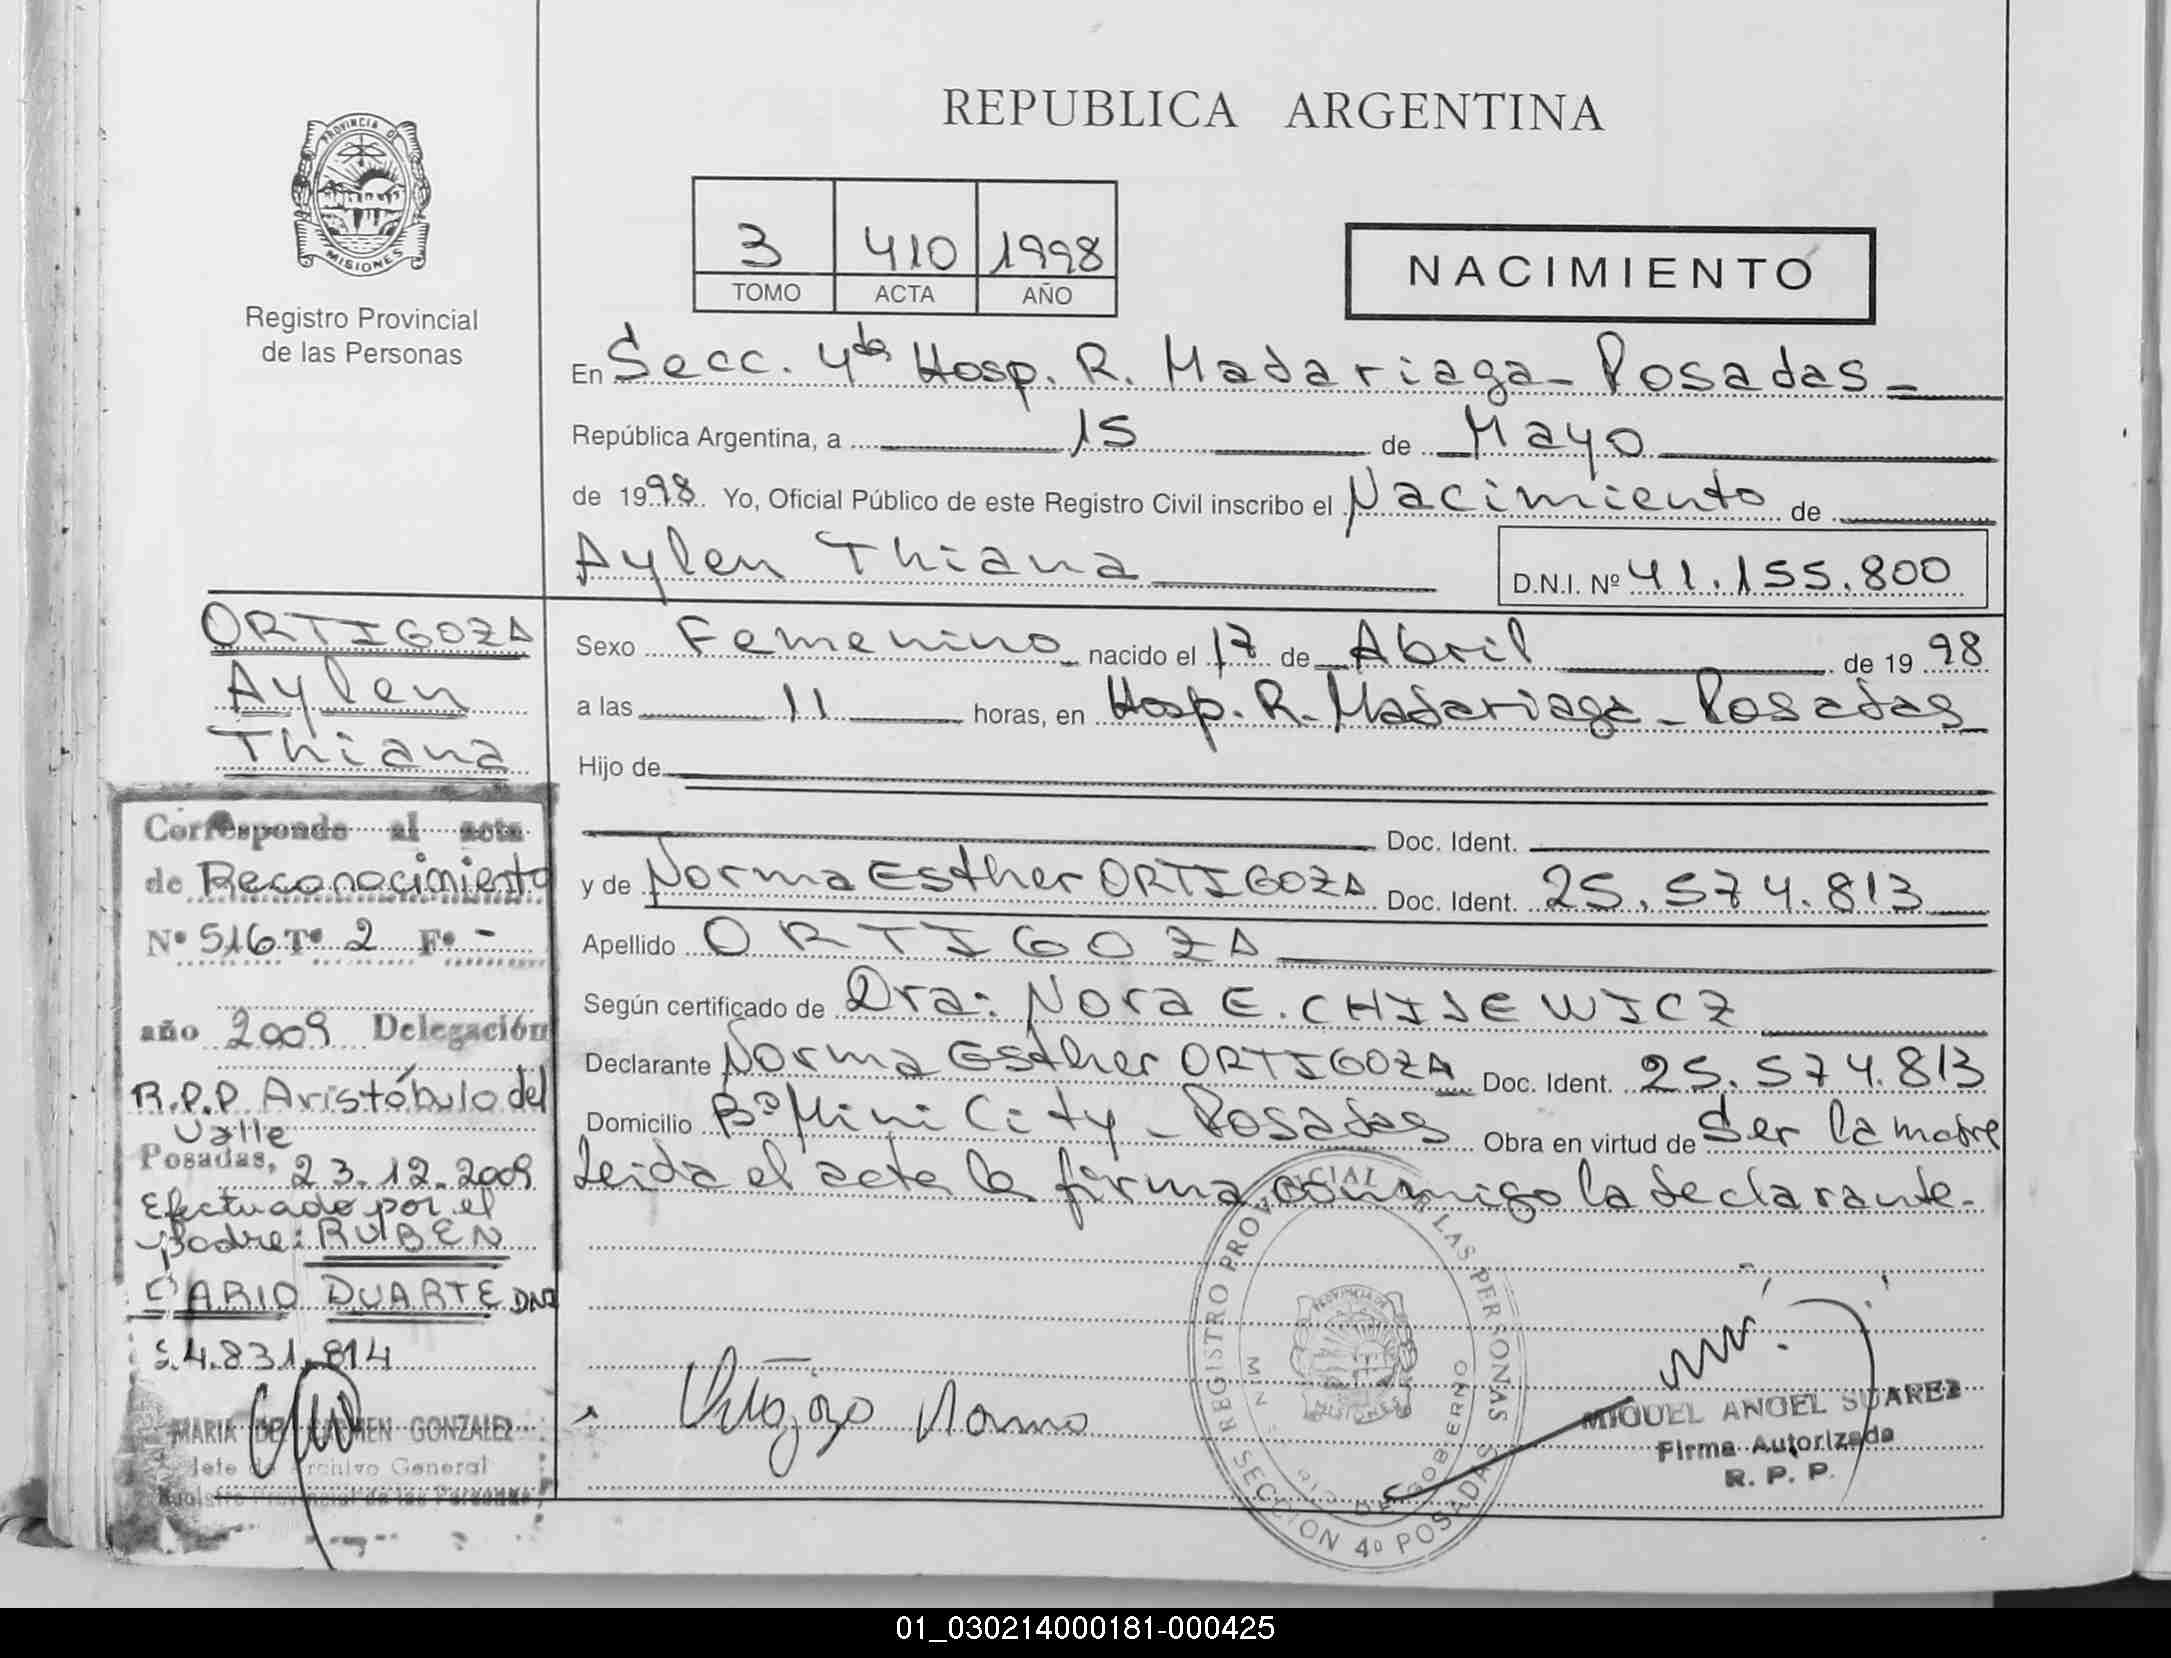 REPUBLICA ARGENTINA
PROVINCIA DE
MISIONES
Registro Provincial
de las Personas
3 410 1998
TOMO ACTA AÑO
NACIMIENTO
En Secc. 4ta Hosp. R. Madariaga - Posadas -
República Argentina, a 15 de Mayo
de 1998. Yo, Oficial Público de este Registro Civil inscribo el Nacimiento de
Aylen Thiana
D.N.I. Nº 41.155.800
ORTIGOZA
Aylen
Thiana
Sexo Femenino nacido el 17 de Abril de 1998
a las 11 horas, en Hosp. R. Madariaga - Posadas
Hijo de
Doc. Ident.
y de Norma Esther ORTIGOZA Doc. Ident. 25.574.813
Apellido ORTIGOZA
Según certificado de Dra: Nora E. CHIJEWICZ
Declarante Norma Esther ORTIGOZA Doc. Ident. 25.574.813
Domicilio Bº Mini City - Posadas Obra en virtud de Ser la madre
Leida el acta la firma conmigo la declarante.
Corresponde al acta
de Reconocimiento
Nº 516 Tº 2 Fº -
año 2009 Delegación
R.P.P Aristóbulo del
Valle
Posadas, 23.12.2009
Efectuado por el
padre: RUBEN
DARIO DUARTE DNI
MARIA DEL CARMEN GONZALEZ
Jefe de Archivo General
Registro Provincial de las Personas
Norma
REGISTRO PROVINCIAL DE LAS PERSONAS
SECCION 4º POSADAS
PROVINCIA DE
MISIONES
MIGUEL ANGEL SUAREZ
Firma Autorizada
R. P. P.
01_030214000181-000425